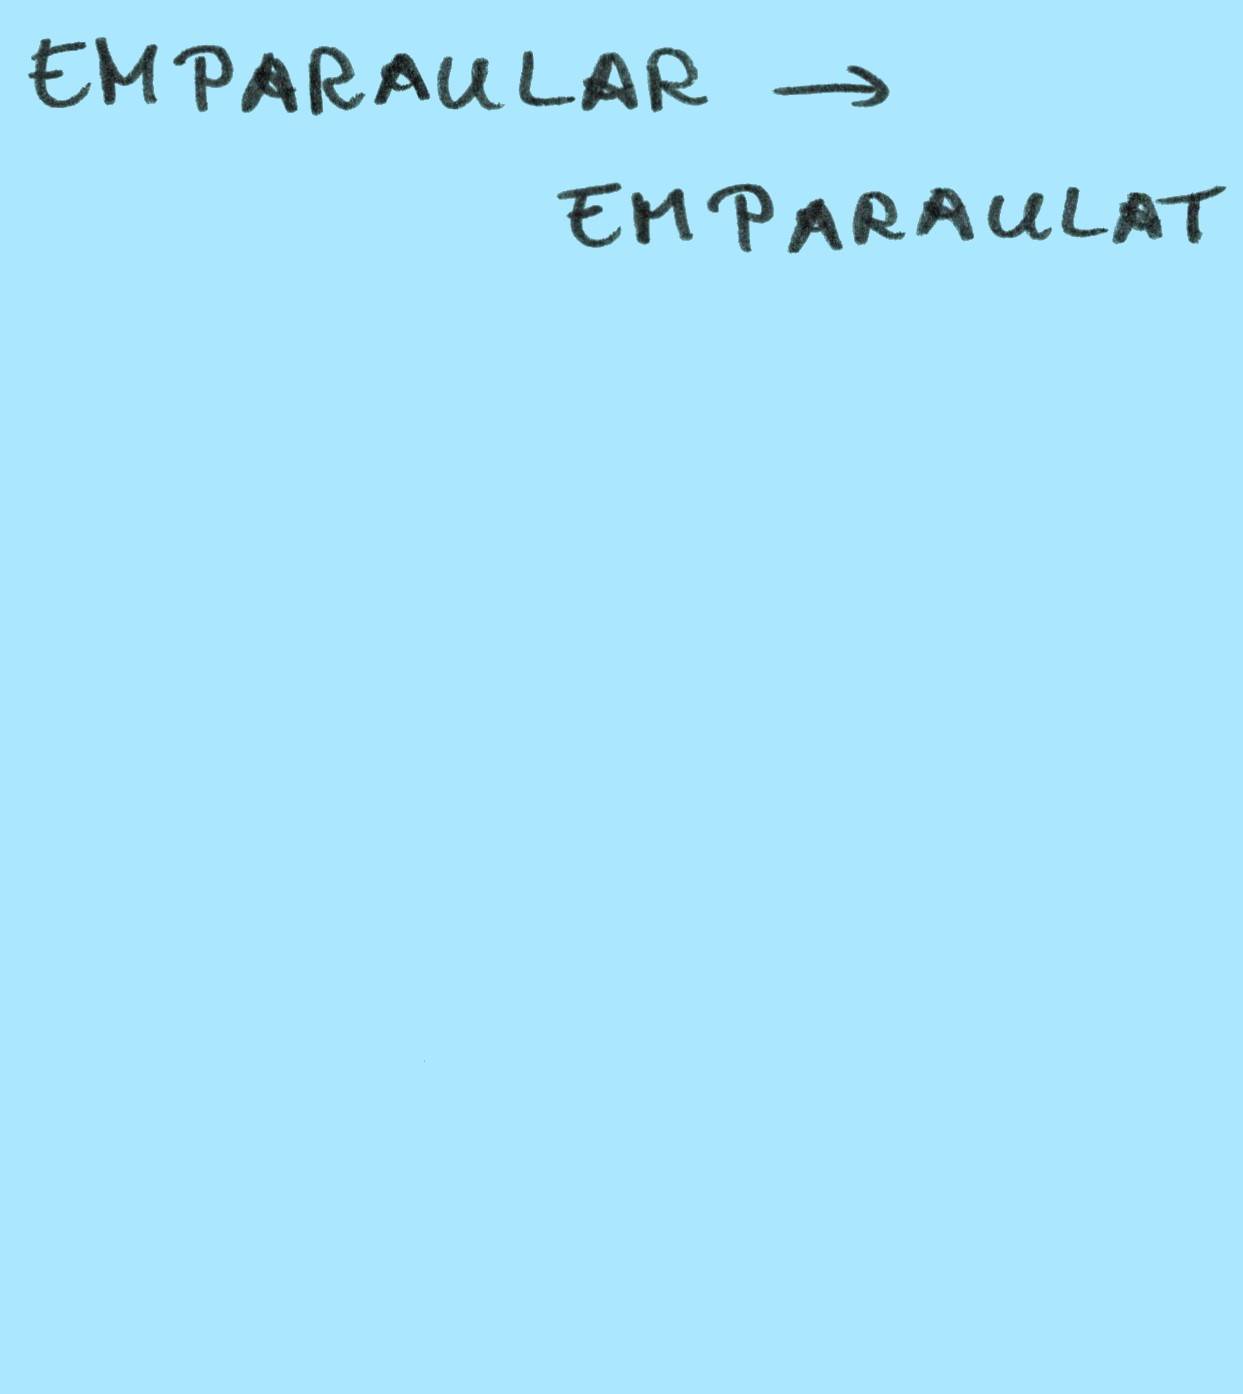 EMPARAULAR →
EMPARAULAT